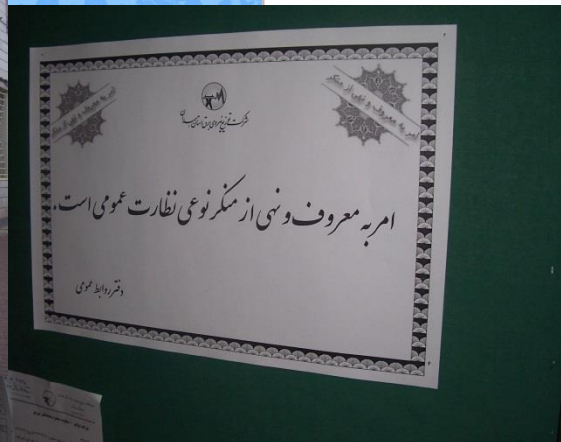 امر به معروف و نهی از منکر
امر به معروف و نهی از منکر
شرکت توزیع نیروی برق استان همدان
امر به معروف و نهی از منکر نوعی نظارت عمومی است.
دفتر روابط عمومی